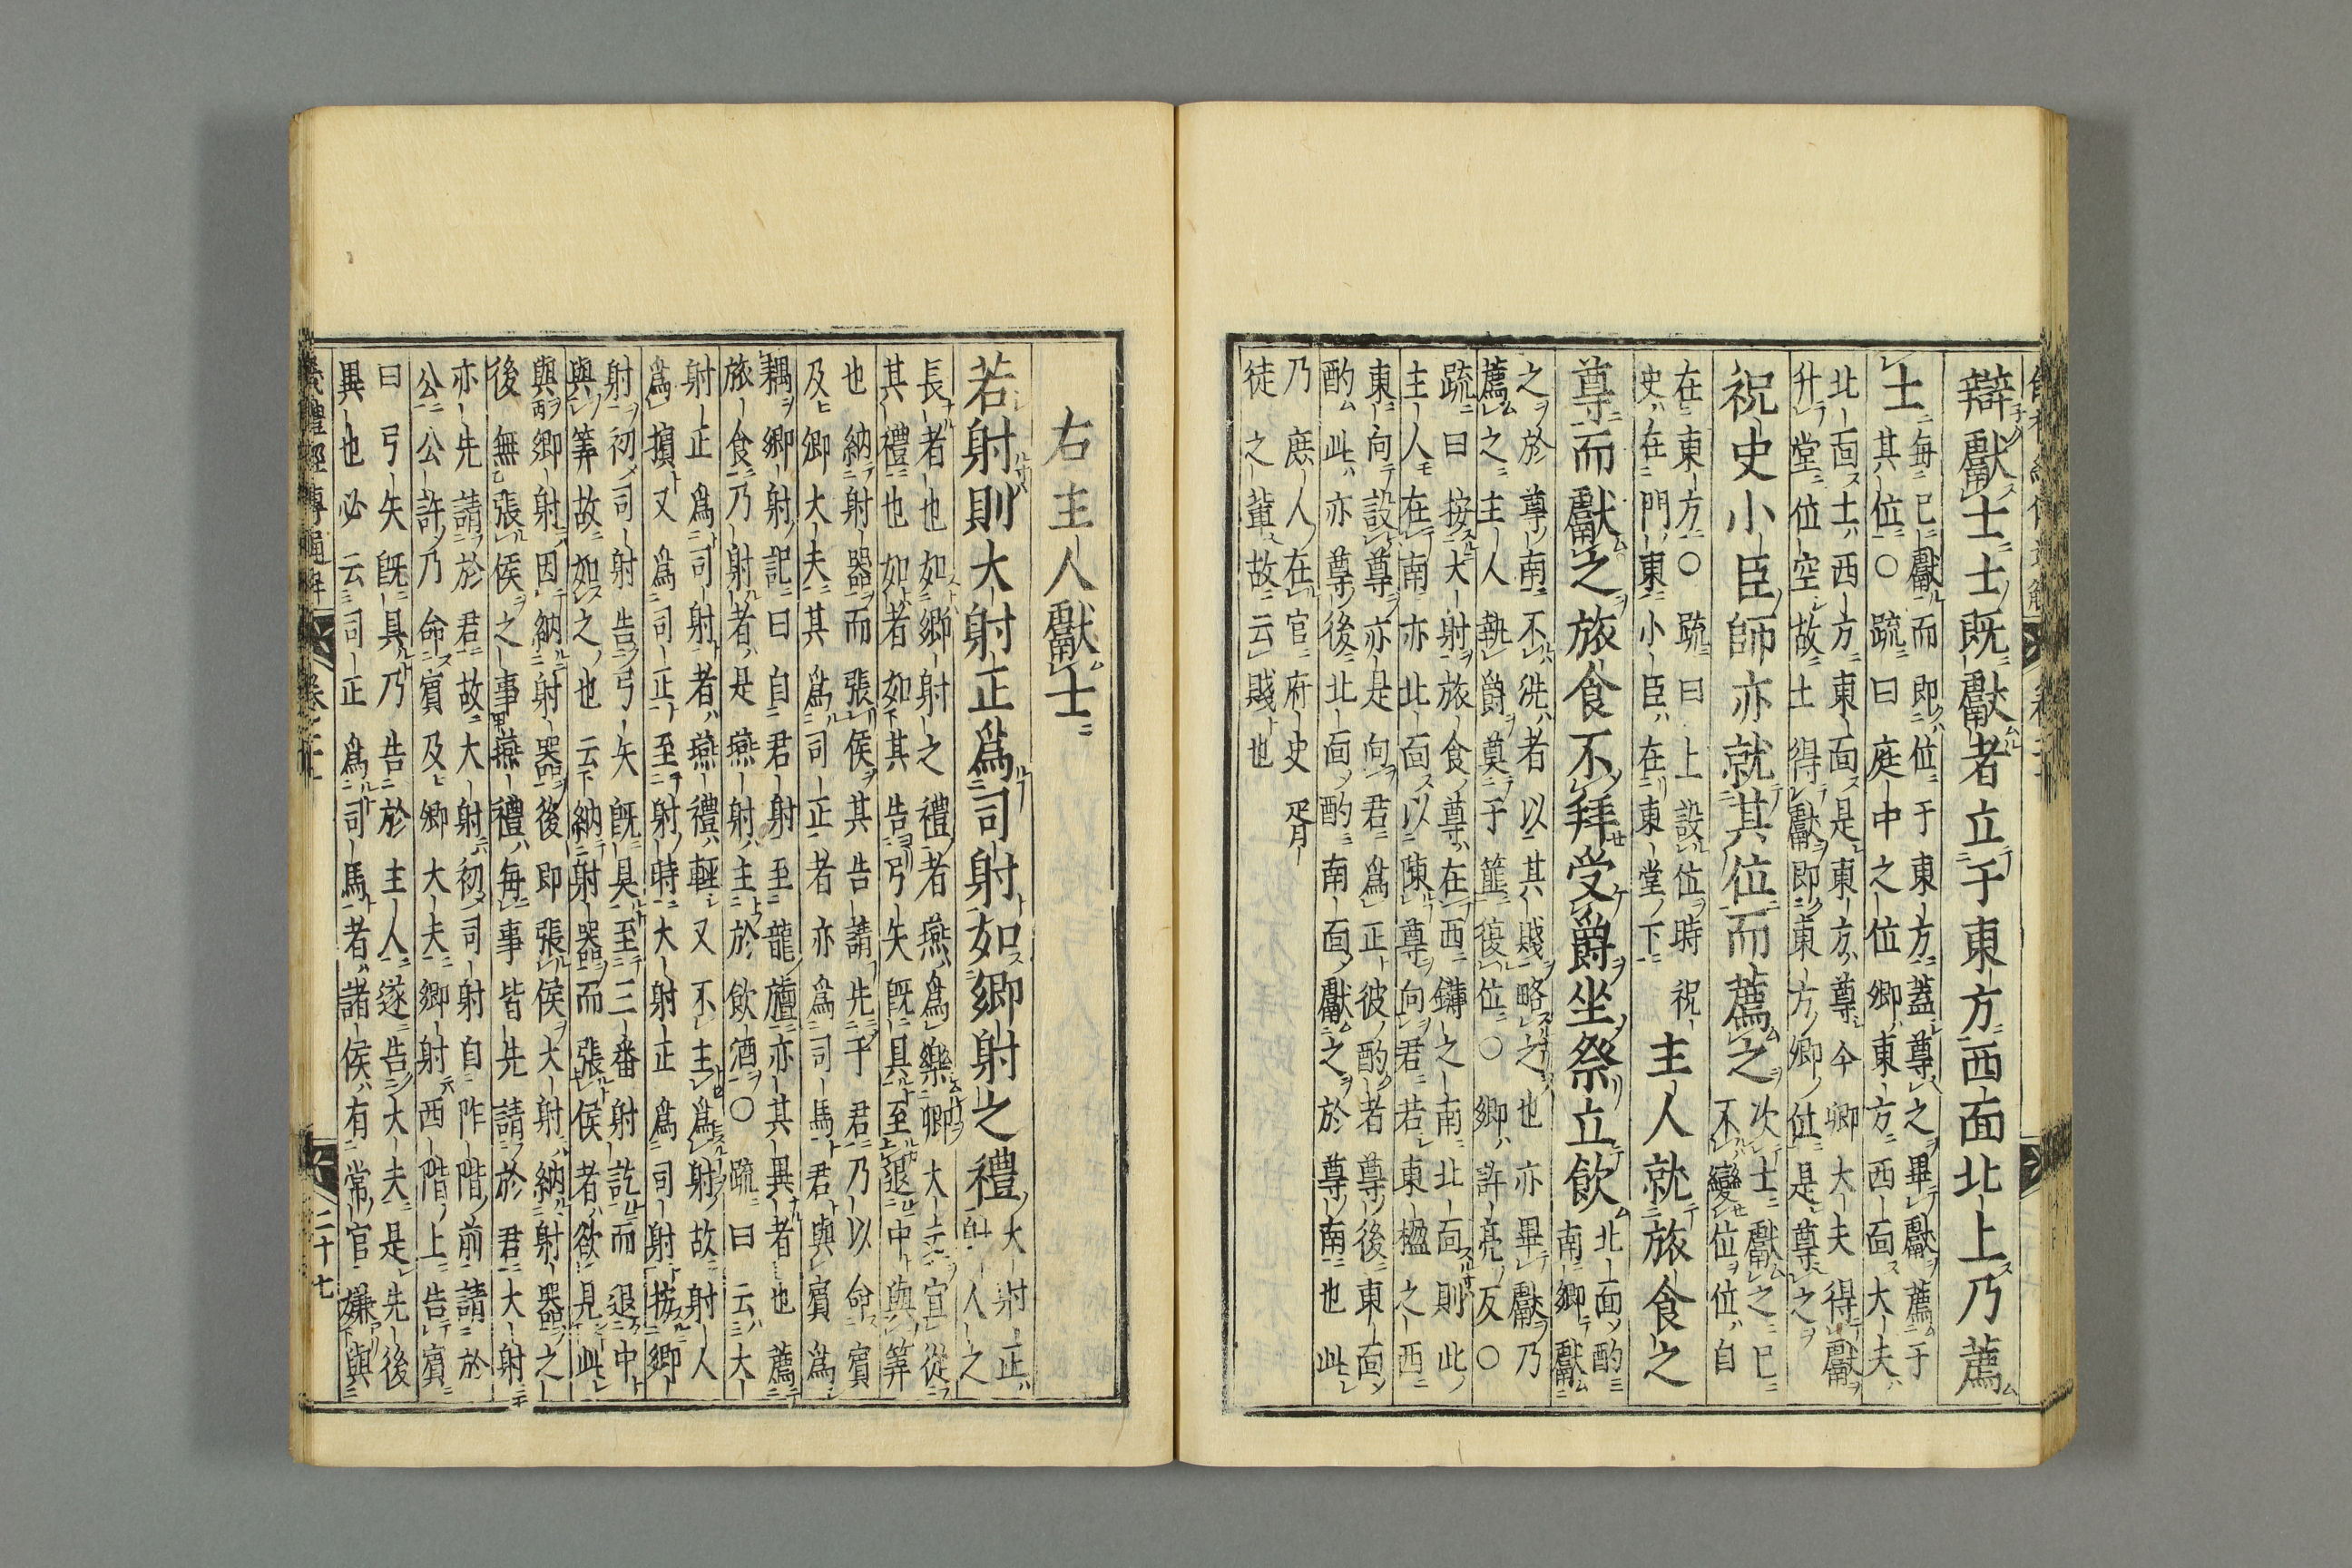 辯獻士士既獻者立于東方西面北上乃薦
士每已獻而即位于東方蓋尊之畢獻薦于
其位○疏曰庭中之位卿東方西面大夫
北面士西方東面是東方尊今卿大夫得獻
升堂位空故士得獻即東方卿位是尊之
祝史小臣師亦就其位而薦之次士獻之已
不變位位自
在東方○疏曰上設位時祝
史在門東小臣在東堂下主人就旅食之
尊而獻之旅食不拜受爵坐祭立飲北面酌
南鄉獻
之於尊南不洗者以其賤略之也亦畢獻乃
薦之主人執爵奠于篚復位○鄉許亮反○
疏曰按大射旅食尊在西鏞之南北面則此
主人在南亦北面以陳尊向君若東楹之西
東向設尊亦是向君為正彼酌者尊後東面
酌此亦尊後北面酌南面獻之於尊南也此
乃庶人在官府史胥
徒之輩故云賤也
右主人獻士
若射則大射正爲司射如鄉射之禮大射正
射人之
長者也如鄉射之禮者燕爲樂卿大夫宜從
其禮也如者如其告弓矢既具至退中與筭
也納射器而張侯其告請先于君乃以命賓
及卿大夫其爲司正者亦爲司馬君與賓爲
耦鄉射記曰自君射至龍旜亦其異者也薦
旅食乃射者是燕射主於飲酒○疏曰云大
射正爲司射者燕禮輕又不主爲射故射人
爲擯又爲司正至射時大射正爲司射按鄉
射初司射告弓矢既具至三番射訖而退中
與筭故如之也云納射器而張侯者欲見此
與鄉射因納射器後即張侯大射納射器之
後無張侯之事燕禮每事皆先請於君大射
亦先請於君故大射初司射自阼階前請於
公公許乃命賓及卿大夫鄉射西階上告賓
曰弓矢既具乃告於主人遂告大夫是先後
異也必云司正爲司馬者諸侯有常官嫌與
儀禮經傳通解
卷二十
二十七